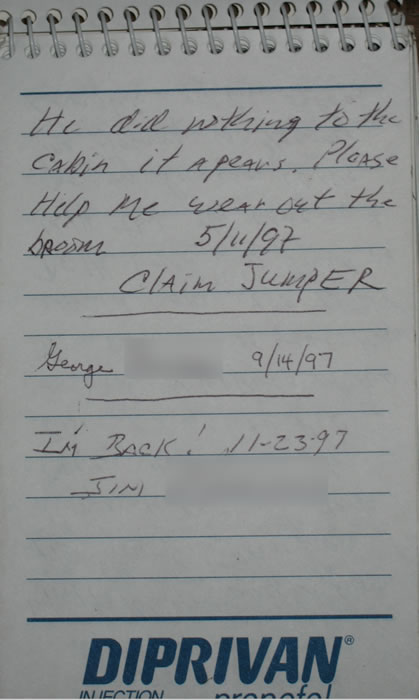 He did nothing to the
cabin it apears. Please
Help me wear out the
broom 5/11/97
Claim Jumper
George 9/14/97
I'm Back! 11-23-97
Jim
DIPRIVAN®
INJECTION propofol